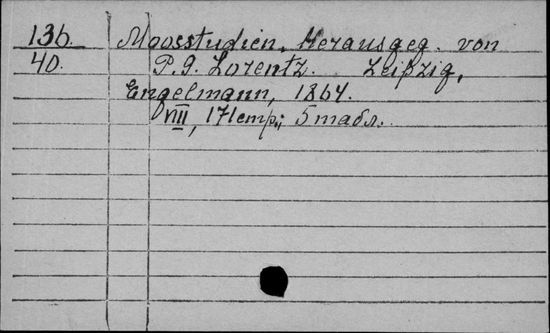 136. Moosstudien. Herausgeg. von
40. P. G. Lorentz. Leipzig,
Engelmann, 1864.
VIII, 171 стр.; 5 табл.